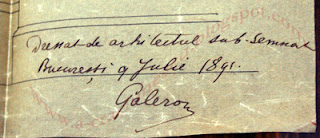 Dresat de arhitectul sub-semnat
Bucuresți 9 Julie 1891.
Galeron